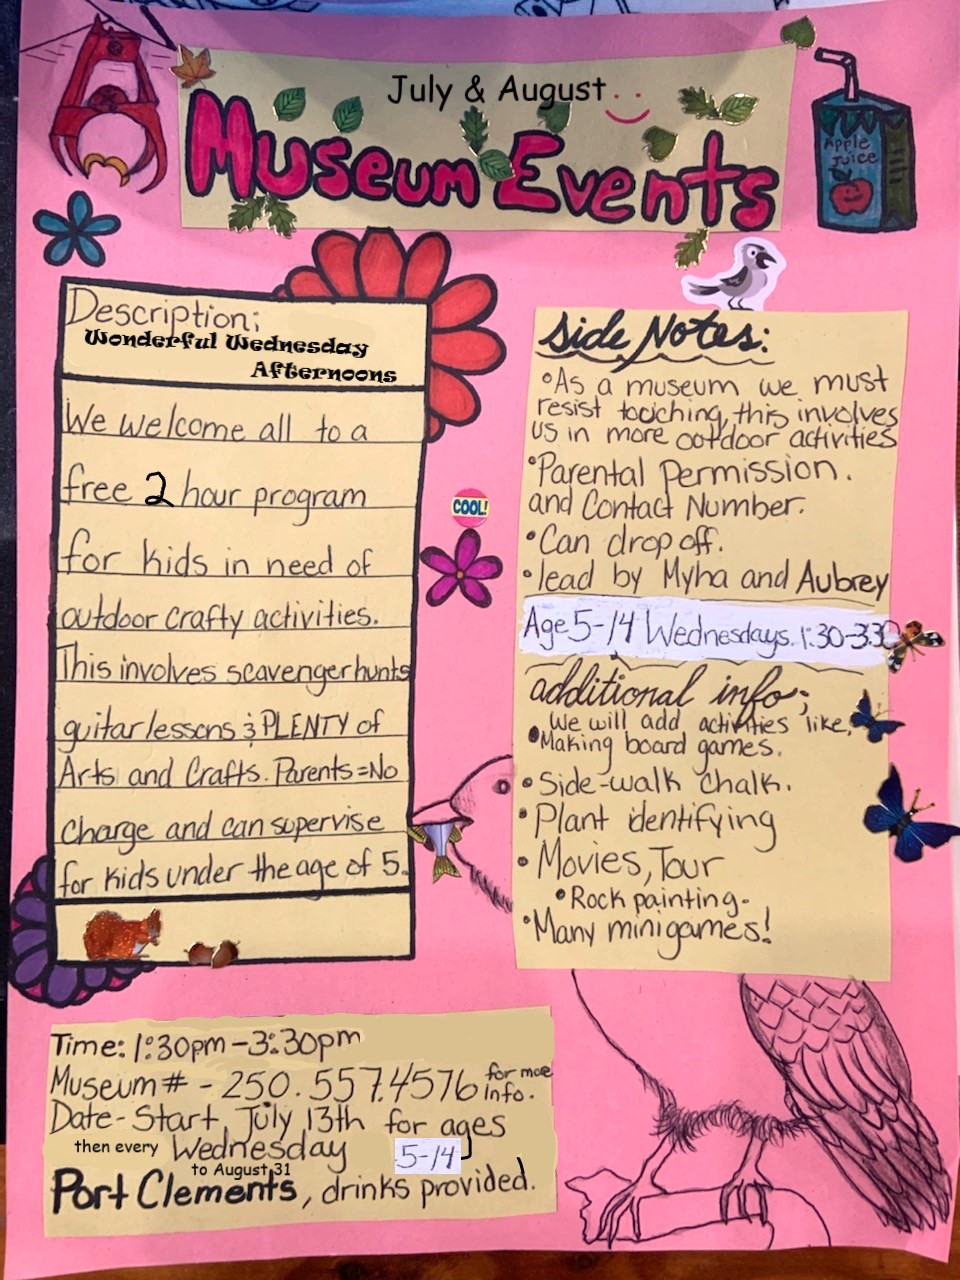 July & August
Museum Events
Apple
Juice
Description:
Wonderful Wednesday
Afternoons
We welcome all to a
free 2 hour program
for kids in need of
outdoor crafty activities.
This involves scavenger hunts
guitar lessons & PLENTY of
Arts and Crafts. Parents=No
charge and can supervise
for kids under the age of 5.
COOL!
Side Notes:
•As a museum we must
resist touching, this involves
us in more outdoor activities
•Parental Permission.
and Contact Number.
•Can drop off.
•lead by Myha and Aubrey
Age 5-14 Wednesdays. 1:30-3:30
additional info;
We will add activities like,
•Making board games.
•Side-walk Chalk.
•Plant identifying
•Movies, Tour
•Rock painting.
•Many minigames!
Time: 1:30pm-3:30pm
Museum# - 250.557.4576 for more
info.
Date-Start July 13th for ages
then every Wednesday 5-14
to August 31
Port Clements, drinks provided.